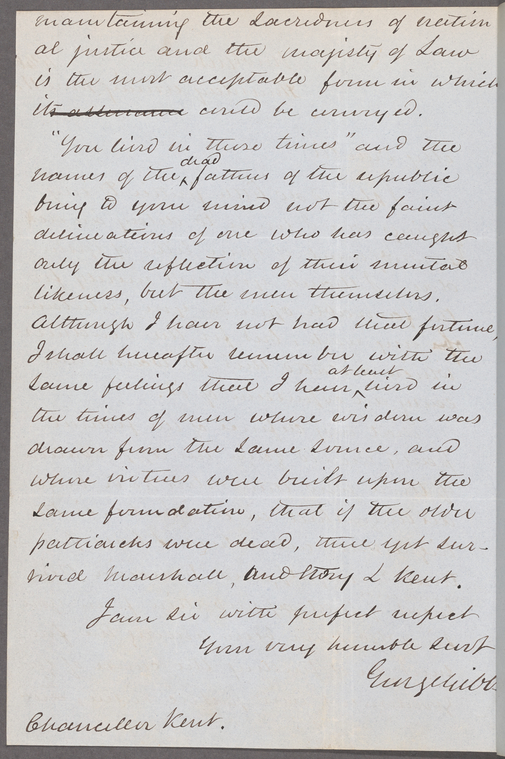 maintaining the sacredness of nation
al justice and the majesty of Law
is the most acceptable form in which
it could be conveyed.
"You lived in those times" and the
names of the dead fathers of the republic
bring to your mind not the faint
delineations of one who has caught
only the reflection of their mental
likeness, but the men themselves.
Although I have not had that fortune,
I shall hereafter remember with the
same feelings that I have at least lived in
the times of men whose wisdom was
drawn from the same source, and
whose virtues were built upon the
same foundation, that if the older
patriarchs were dead, there yet sur-
vived Marshall, and Story & Kent.
I am sir with perfect respect
Your very humble Servt
George Gibbs
Chancellor Kent.